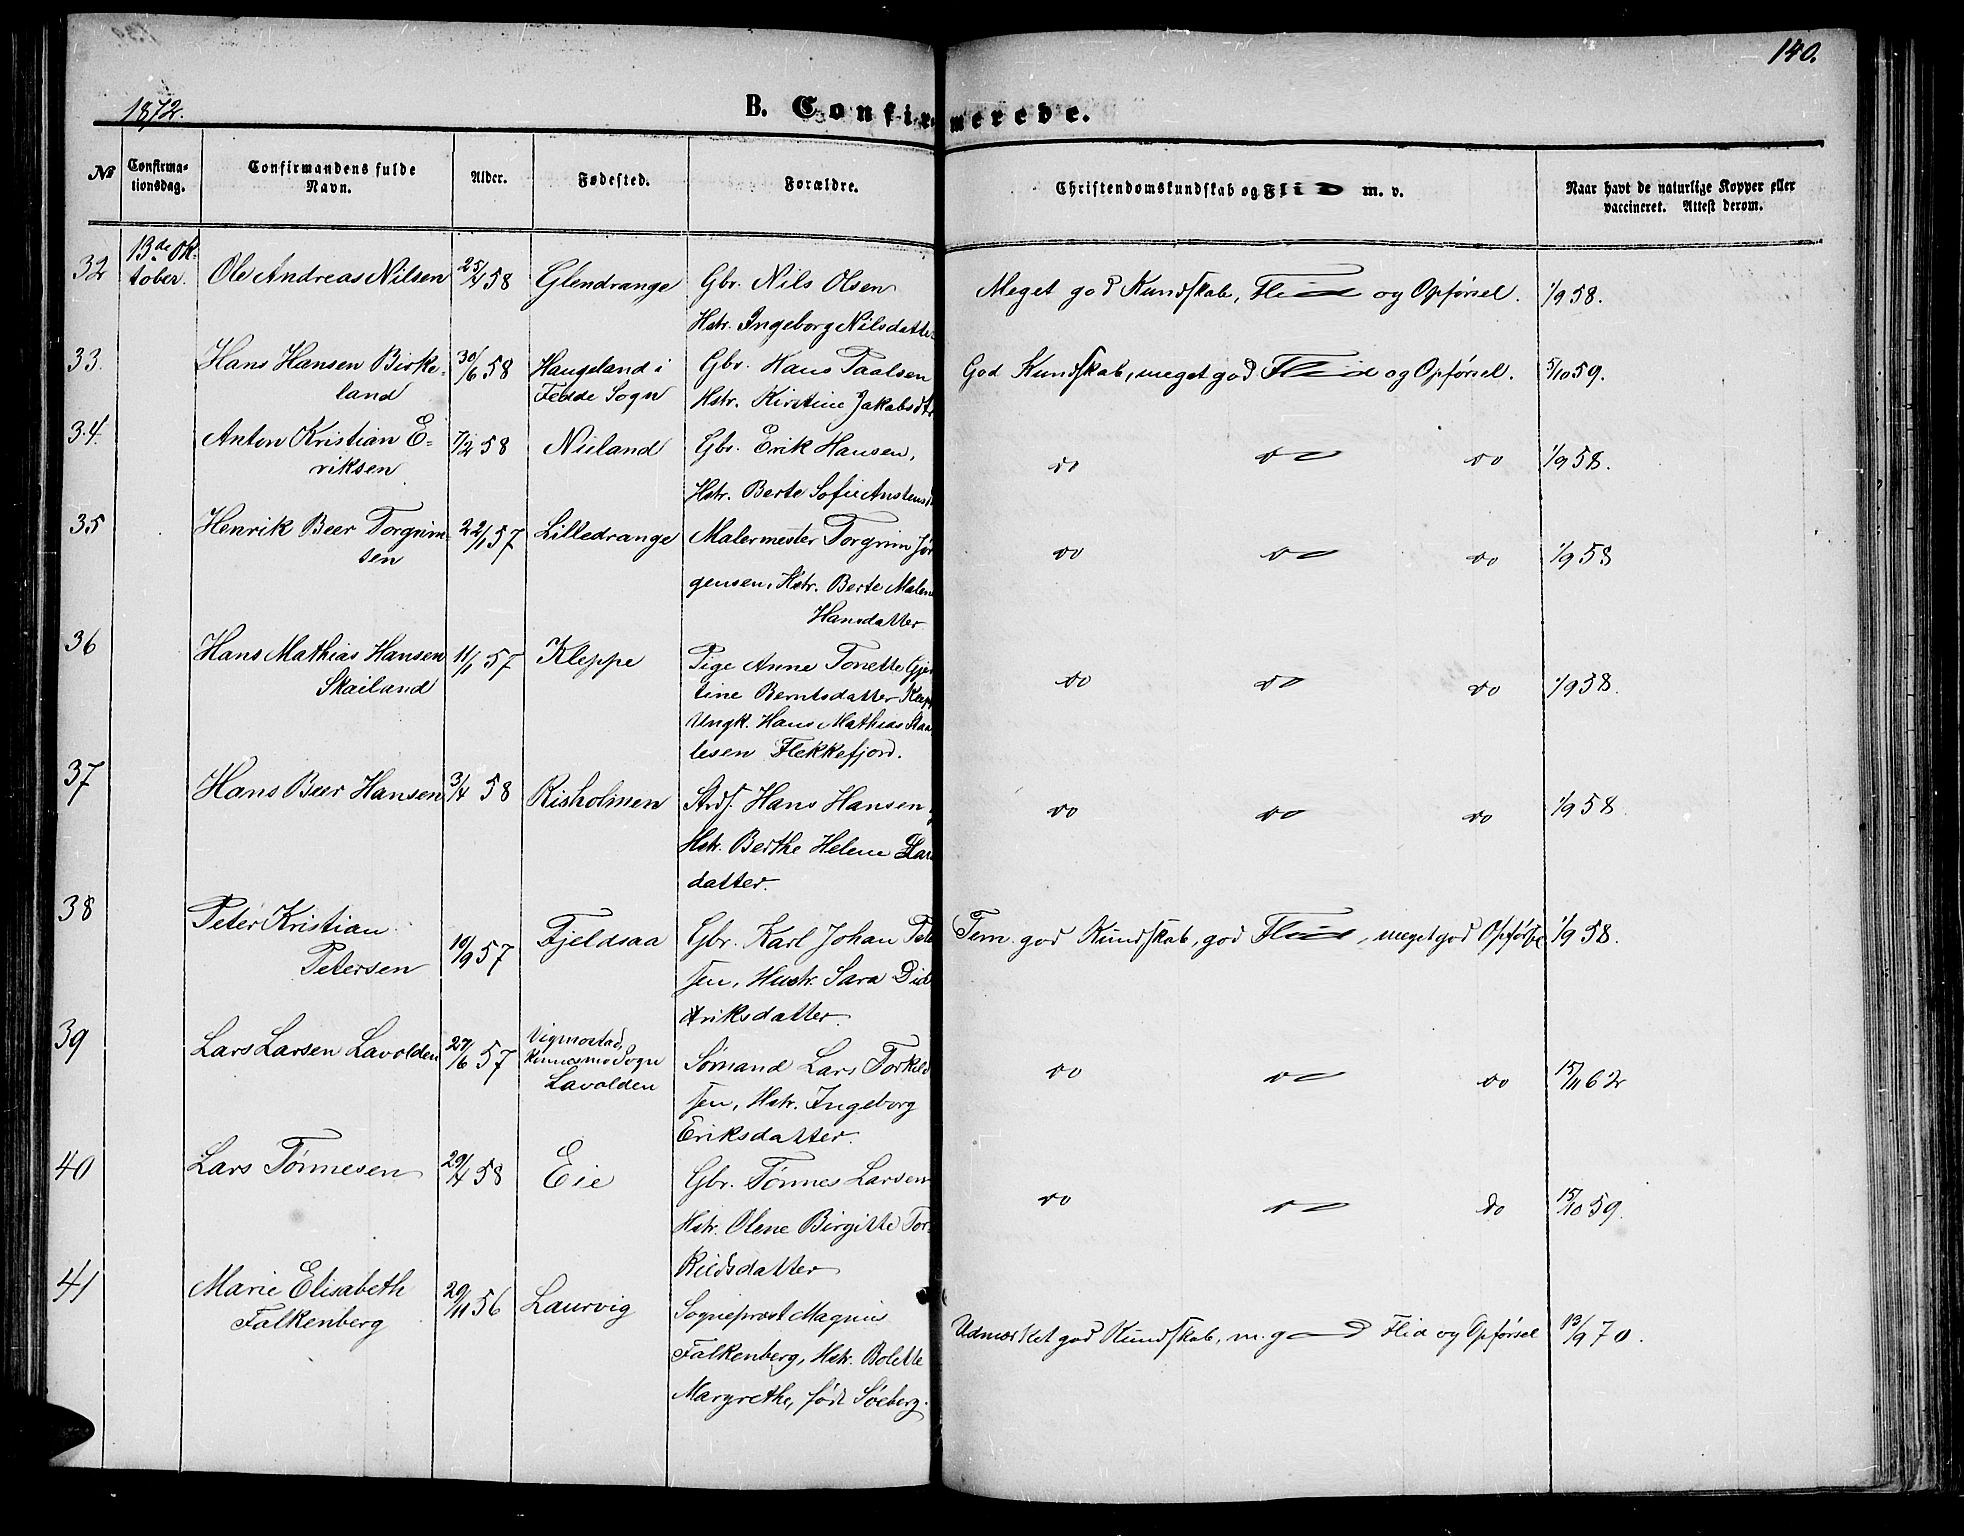 140.
1872.
B. Confirmerede.
№
Confirma-
tionsdag.
Confirmandens fulde
Navn.
Alder.
Fødested.
Forældre.
Christendomskundskab og Flid m. v.
Naar havt de naturlige Kopper eller
vaccineret. Attest derom.
32
13de Ok-
tober.
Ole Andreas Nilsen
25/4 58
Glendrange
Gbr. Nils Olsen
Hstr. Ingeborg Nilsdatte
Meget god Kundskab, Flid og Opførsel.
1/9 58.
33.
Hans Hansen Birke-
land
30/6 58
Haugeland i
Fedde Sogn
Gbr. Hans Paalsen
Hstr. Kirstine Jakobsdt
God Kundskab, meget god Flid og Opførsel.
5/10 59.
34.
Anton Kristian E-
riksen
7/2 58
Nuland
Gbr. Erik Hansen,
Hstr. Berte Sofie Anstens
do do do
1/9 58.
35
Henrik Beer Torgrim
sen
22/1 57
Lilledrange
Malermester Torgrim Jør
gensen, Hstr. Berte Malen
Hansdatter
do do do
1/9 58
36
Hans Mathias Hansen
Skailand
11/1 57
Kleppe
Pige Anne Tonette Gjer
tine Berntsdatter Klep
Ungk. Hans Mathias Staa
lesen Flekkefjord.
do do do
1/9 58.
37
Hans Beer Hansen
3/4 58
Risholmen
Strds. Hans Hansen
Hstr. Berthe Helene Lar
datter.
do do do
1/9 58.
38
Peter Kristian
Petersen
10/9 57
Fjeldsaa
Gbr. Karl Johan Peter
sen, Hustr. Sara Did
riksdatter
Tem. god Kundskab, god Flid, meget god Opførsel
1/9 58.
39
Lars Larsen Lavolden
27/6 57
Vigmostad,
Sogn
Lavolden
Sømand Lars Torkild
sen, Hstr. Ingeborg
Eriksdatter.
do do do
15/11 62
40
Lars Tønnesen
29/4 58
Eie
Gbr. Tønnes Larsen
Hstr. Olene Birgitte Tor-
kildsdatter
do do do
15/10 59.
41
Marie Elisabeth
Falkenberg
29/11 56
Laurvig
Sogneprest Magnus
Falkenberg, Hstr. Bolette
Margrethe, født Søeberg.
Udmærket god Kundskab, m. god Flid og Opførsel
13/9 70.